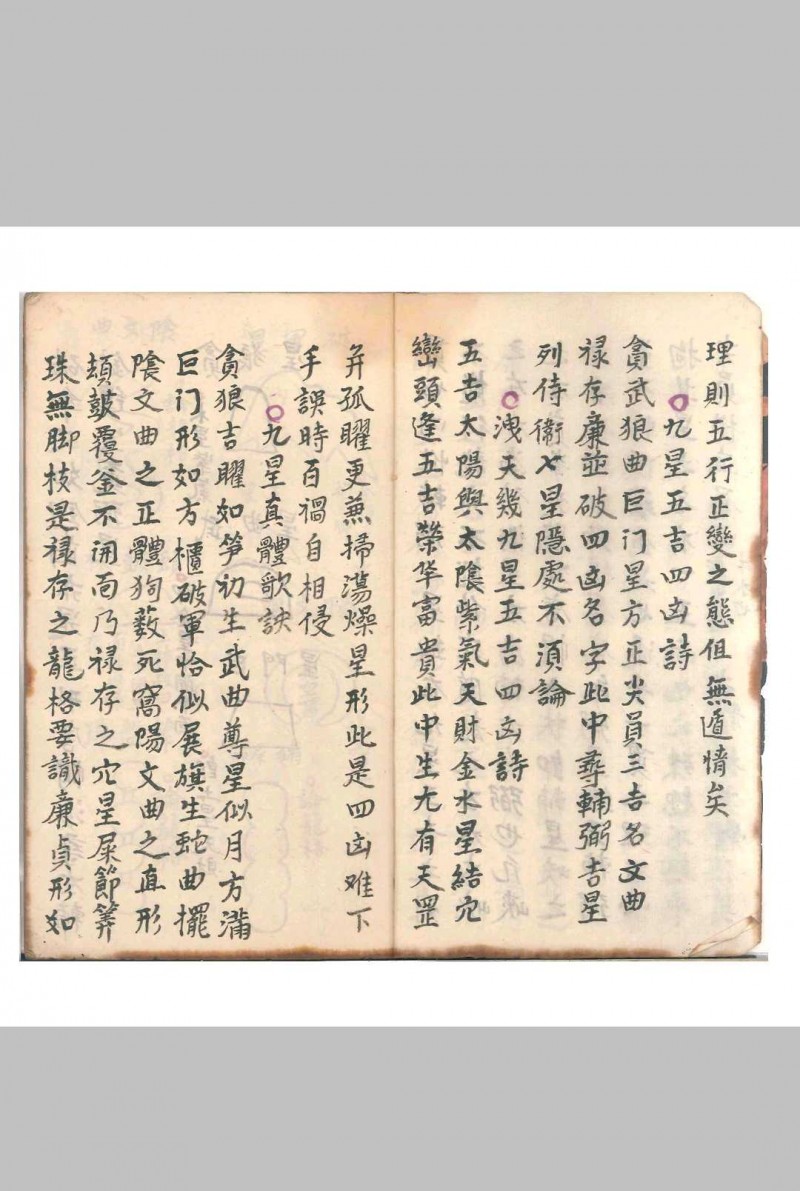 理則五行正變之態俱無遁情矣
九星五吉四凶詩
貪武狼曲巨门星方正尖員三吉名文曲
禄存廉並破四凶名字此中尋輔弼吉星
列侍衛七星隱處不須論
洩天幾九星五吉四凶詩
五吉太陽與太陰紫氣天財金水星結穴
巒頭逢五吉榮华富貴此中生尢有天罡
并孤曜更蕪掃蕩燥星形此是四凶难下
手誤時百禍自相侵
九星真體歌訣
貪狼吉曜如笋初生武曲尊星似月方滿
巨门形如方櫃破軍恰似展旗生蛇曲擺
陰文曲之正體狗薮死窩陽文曲之直形
頓皷覆釜不開面乃禄存之穴星屎節箅
珠無脚枝是禄存之龍格要識廉貞形如